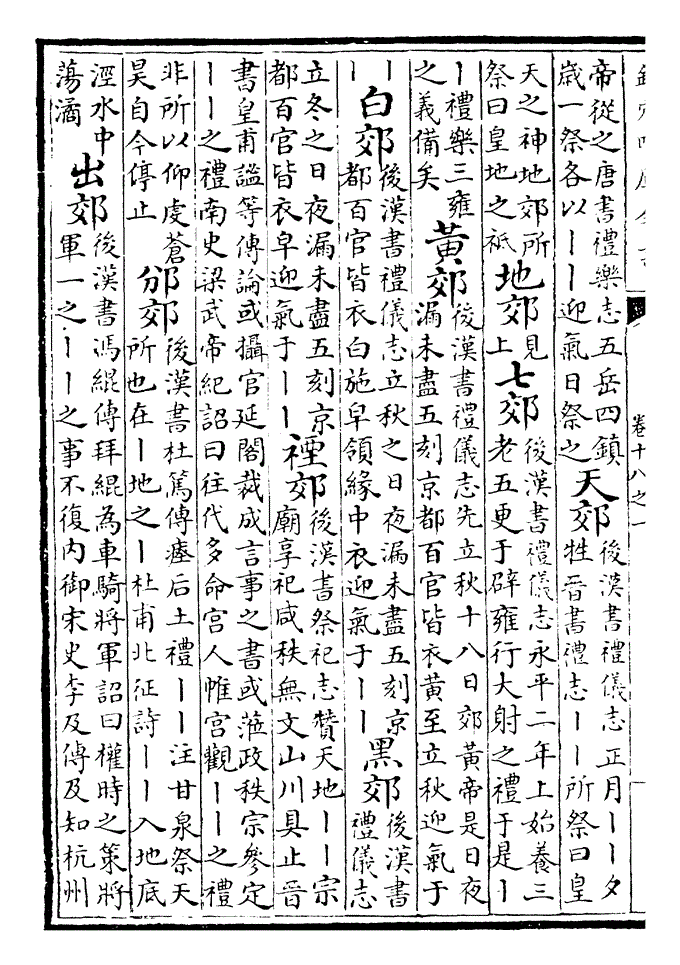 卷十八之一
帝從之唐書禮樂志五岳四鎮歲一祭各以丨丨迎氣日祭之天郊後漢書禮儀志正月丨丨夕牲晉書禮志丨丨所祭曰皇
天之神地郊所祭曰皇地之祇地郊見上七郊後漢書禮儀志永平二年上始養三老五更于辟雍行大射之禮于是丨
丨禮樂三雍之義備矣黃郊後漢書禮儀志先立秋十八日郊黃帝是日夜漏未盡五刻京都百官皆衣黃至立秋迎氣于
丨丨白郊後漢書禮儀志立秋之日夜漏未盡五刻京都百官皆衣白施皁領緣中衣迎氣于丨丨黑郊後漢書禮儀志
立冬之日夜漏未盡五刻京都百官皆衣皁迎氣于丨丨禋郊後漢書祭祀志贊天地丨丨宗廟享祀咸秩無文山川具止晉
書皇甫謐等傳論或攝官延閣裁成言事之書或蒞政秩宗參定丨丨之禮南史梁武帝紀詔曰往代多命宮人帷宮觀丨丨之禮
非所以仰虔蒼昊自今停止邠郊後漢書杜篤傳瘞后土禮丨丨注甘泉祭天所也在丨地之丨杜甫北征詩丨丨入地底
涇水中蕩潏出郊後漢書馮緄傳拜緄為車騎將軍詔曰權時之策將軍一之丨丨之事不復内御宋史李及傳及知杭州